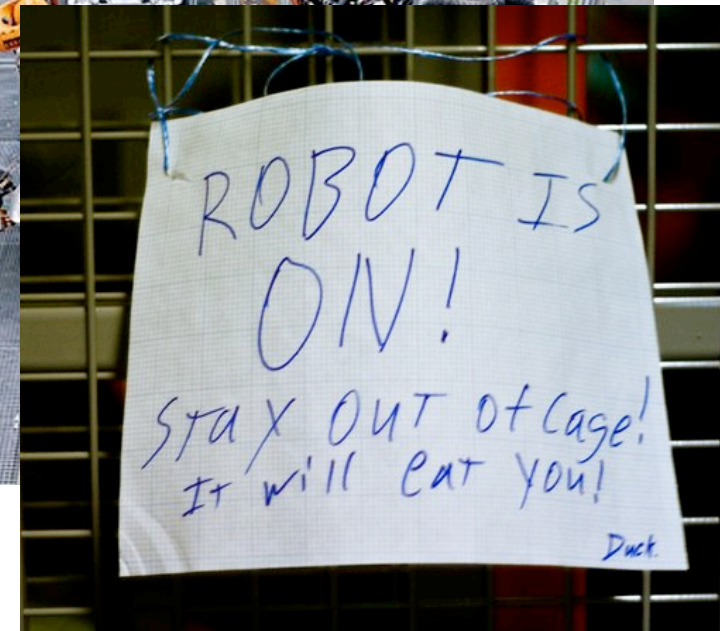 ROBOT IS
ON!
Stay OUT Of Cage!
It will eat you!
Duck.